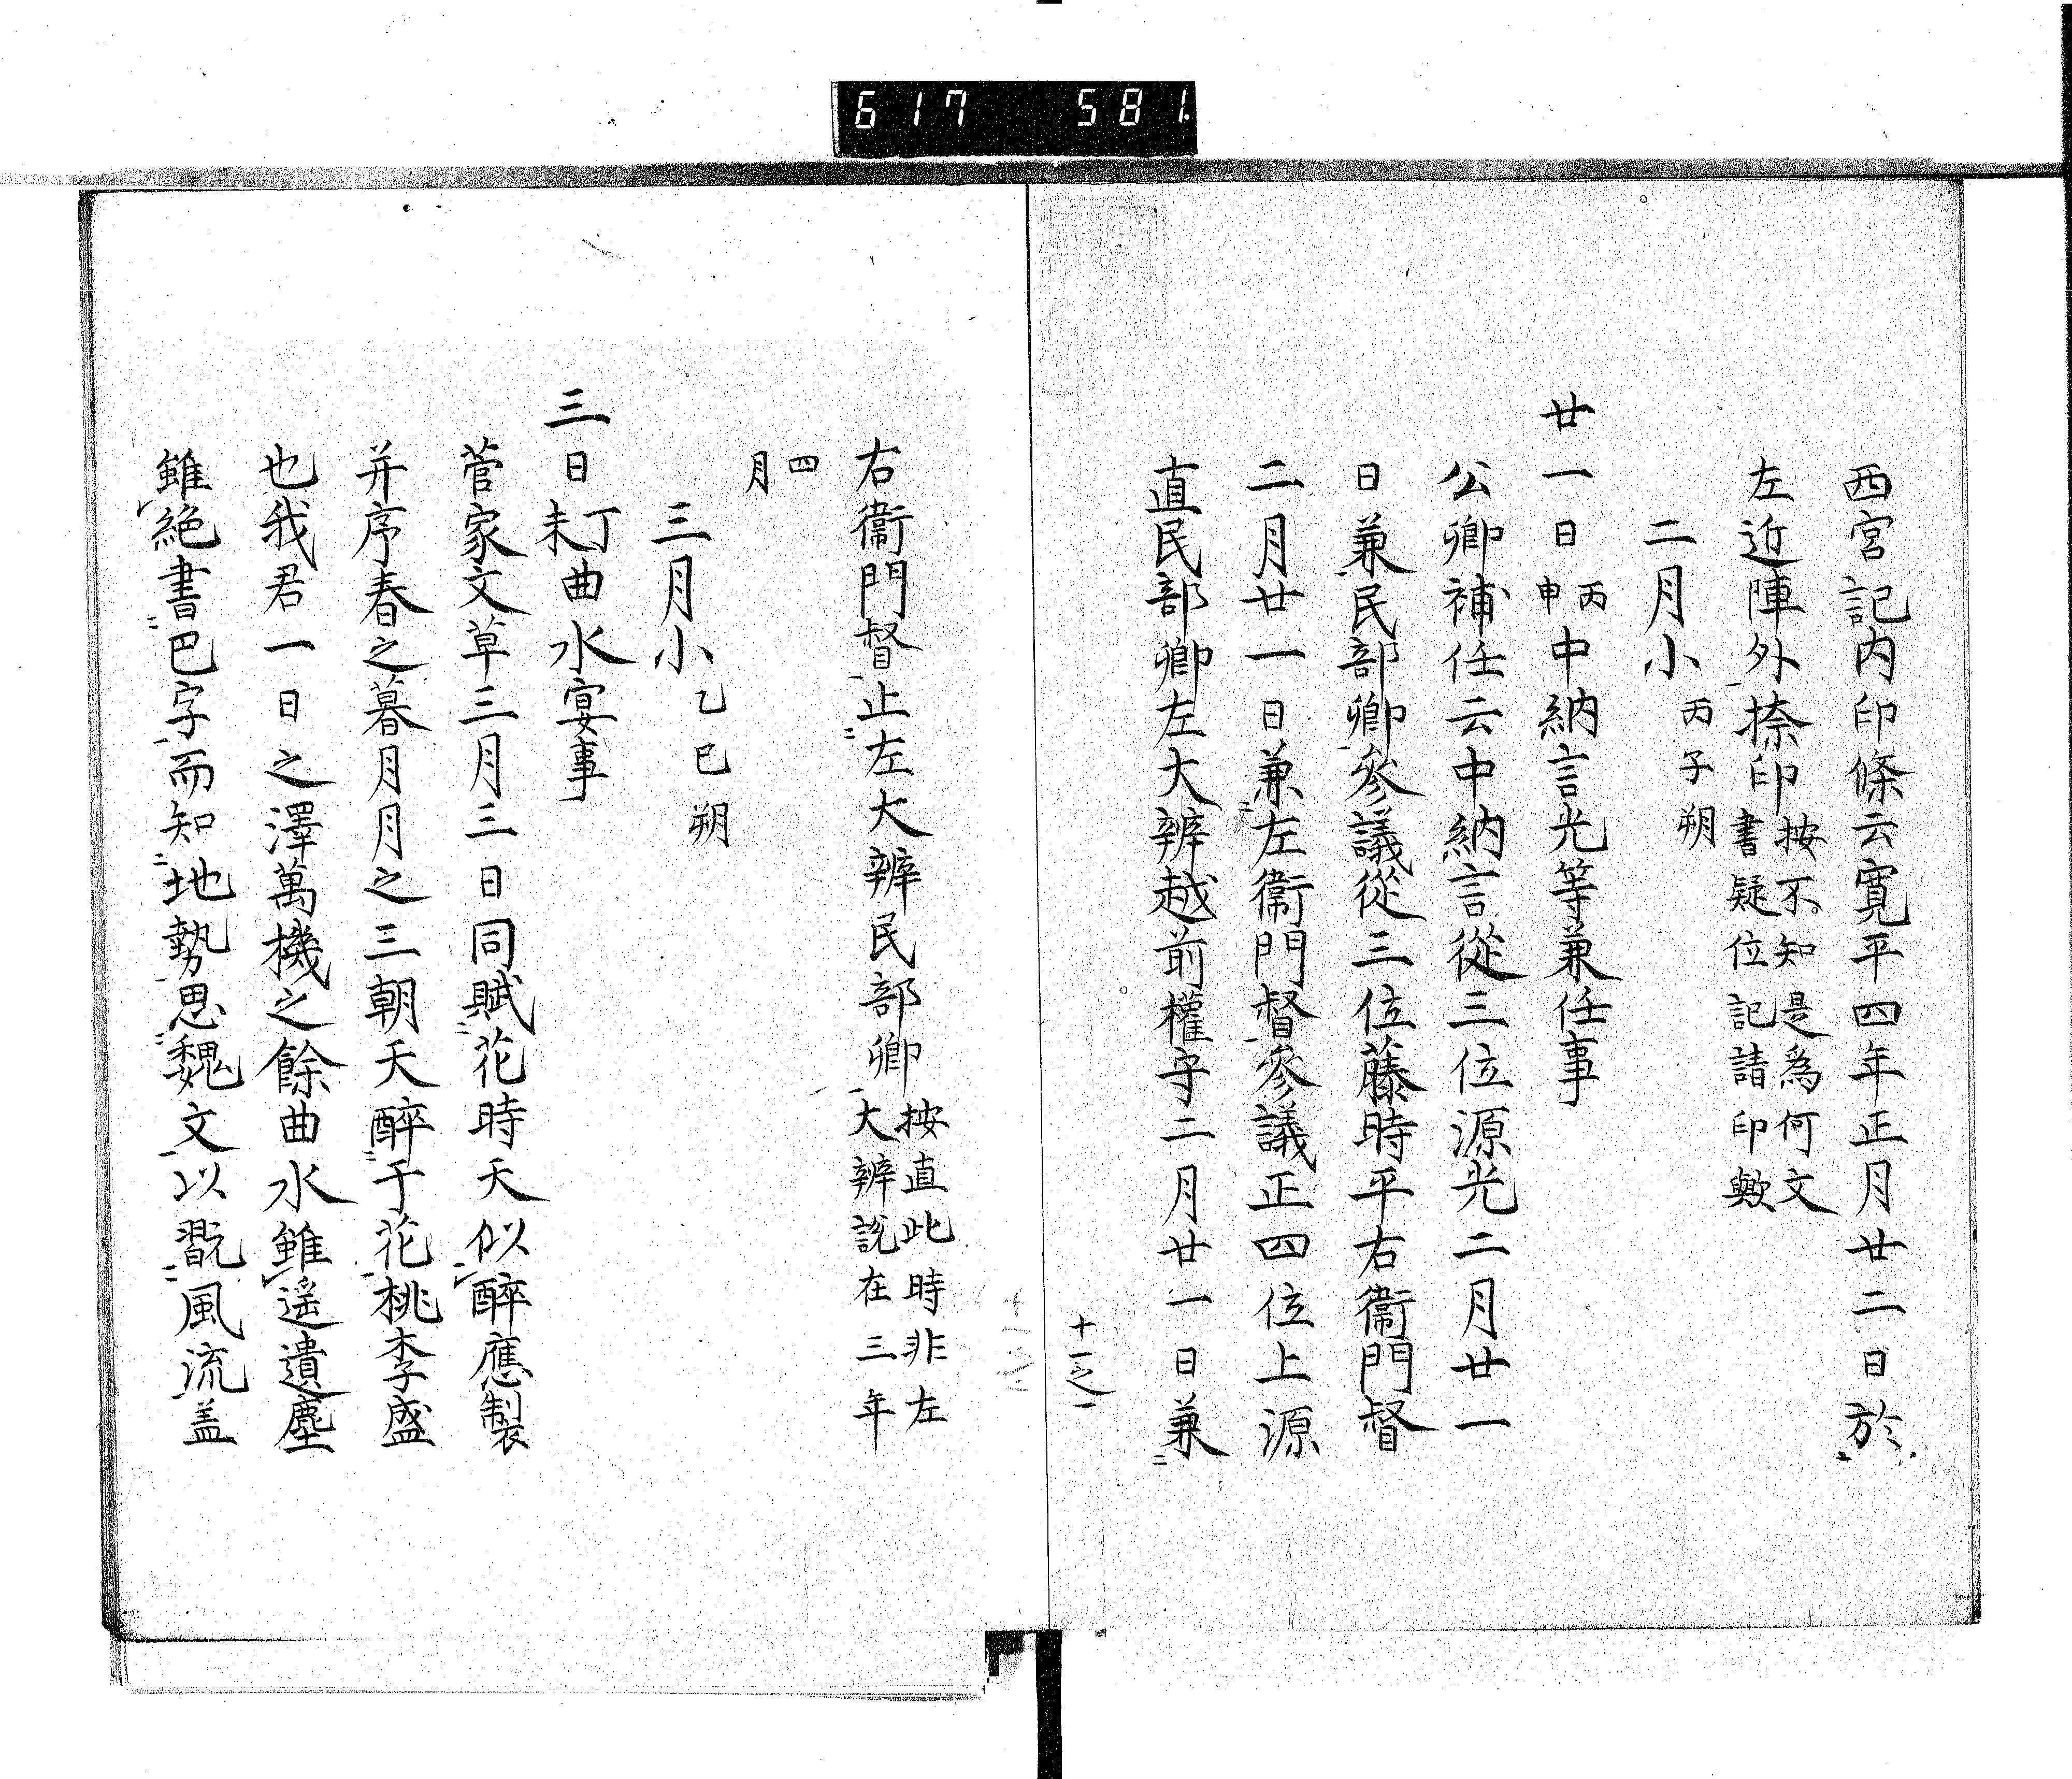 617 581
西宮記内印條云寛平四年正月廿二日於
左近陣外捺印按不知是爲何文
書疑位記請印歟
二月小丙子朔
廿一日丙申中納言光等兼任事
公卿補任云中納言從三位源光二月廿一
日兼民部卿參議從三位藤時平右衞門督
二月廿一日兼左衞門督參議正四位上源
直民部卿左大辨越前權守二月廿一日兼
十一之一
右衞門督止左大辨民部卿按直此時非左
大辨說在三年
四
月
三月小乙巳朔
三日丁未曲水宴事
菅家文草三月三日同賦花時天似醉應製
并序春之暮月月之三朝天醉于花桃李盛
也我君一日之澤萬機之餘曲水雖遥遺塵
雖絶書巴字而知地勢思魏文以翫風流盖